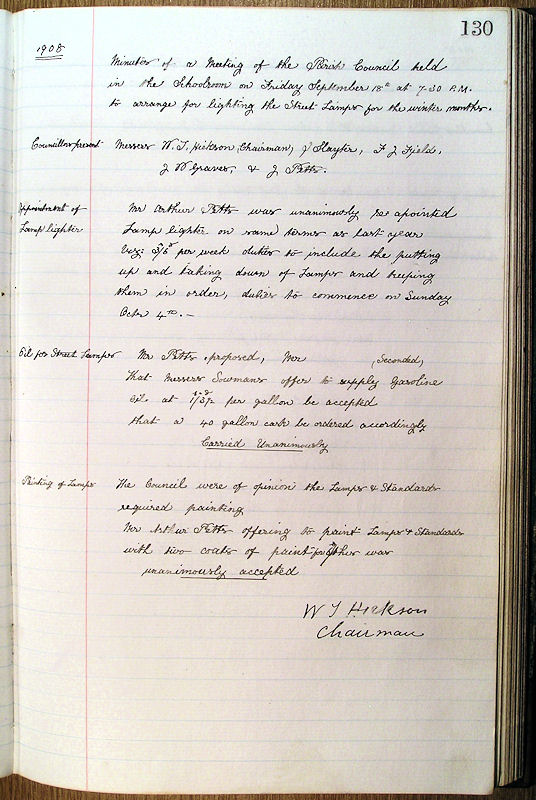 130
1908
Minutes of a Meeting of the Parish Council held
in the Schoolroom on Friday September 18th at 7-30 P.M.
to arrange for lighting the Street Lamps for the winter months.
Councillors present Messers W. T. Hickson, Chairman, J Slayter, F J Field,
J W Graves, & J Petts.
Appointment of
Lamp lighter
Mr Arthur Petts was unanimously Re apointed
Lamp lighter on same terms as last year
Viz: per week duties to include the putting
up and taking down of Lamps and keeping
them in order, duties to commence on Sunday
Octr 4th. —
Oil for Street Lamps Mr Petts proposed, Mr Seconded,
That Messers Sowmans offer to supply Gasoline
Oil at per gallon be accepted
that a 40 gallon cask be ordered accordingly
Carried Unanimously
Painting of Lamps The Council were of opinion the Lamps & Standards
required painting
Mr Arthur Petts offering to paint Lamps & Standards
with two coats of paint for this was
unanimously accepted
W T Hickson
Chairman